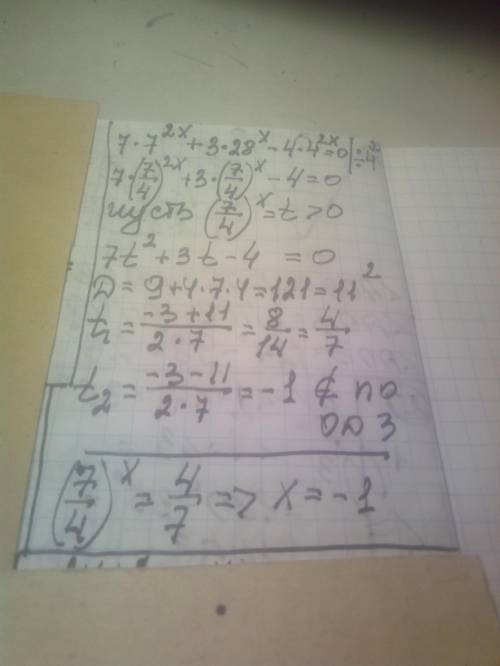 7·7^{2x} + 3·28^x - 4·4^{2x} = 0 | ÷ 4^{2x}
7·(7/4)^{2x} + 3·(7/4)^x - 4 = 0
пусть (7/4)^x = t > 0
7t² + 3t - 4 = 0
D = 9 + 4·7·4 = 121 = 11²
t₁ = (-3 + 11)/(2·7) = 8/14 = 4/7
t₂ = (-3 - 11)/(2·7) = -1 ∉ по
ОДЗ
(7/4)^x = 4/7 => x = -1